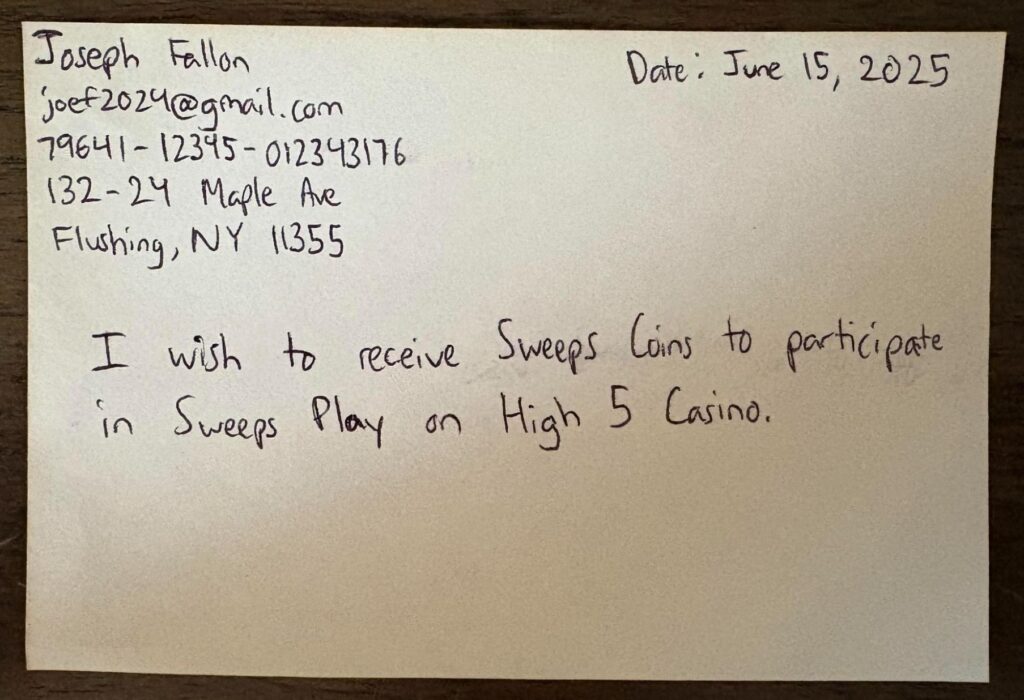 Joseph Fallon
Date: June 15, 2025
joef2024@gmail.com
79641-12345-012343176
132-24 Maple Ave
Flushing, NY 11355
I wish to receive Sweeps Coins to participate
in Sweeps Play on High 5 Casino.